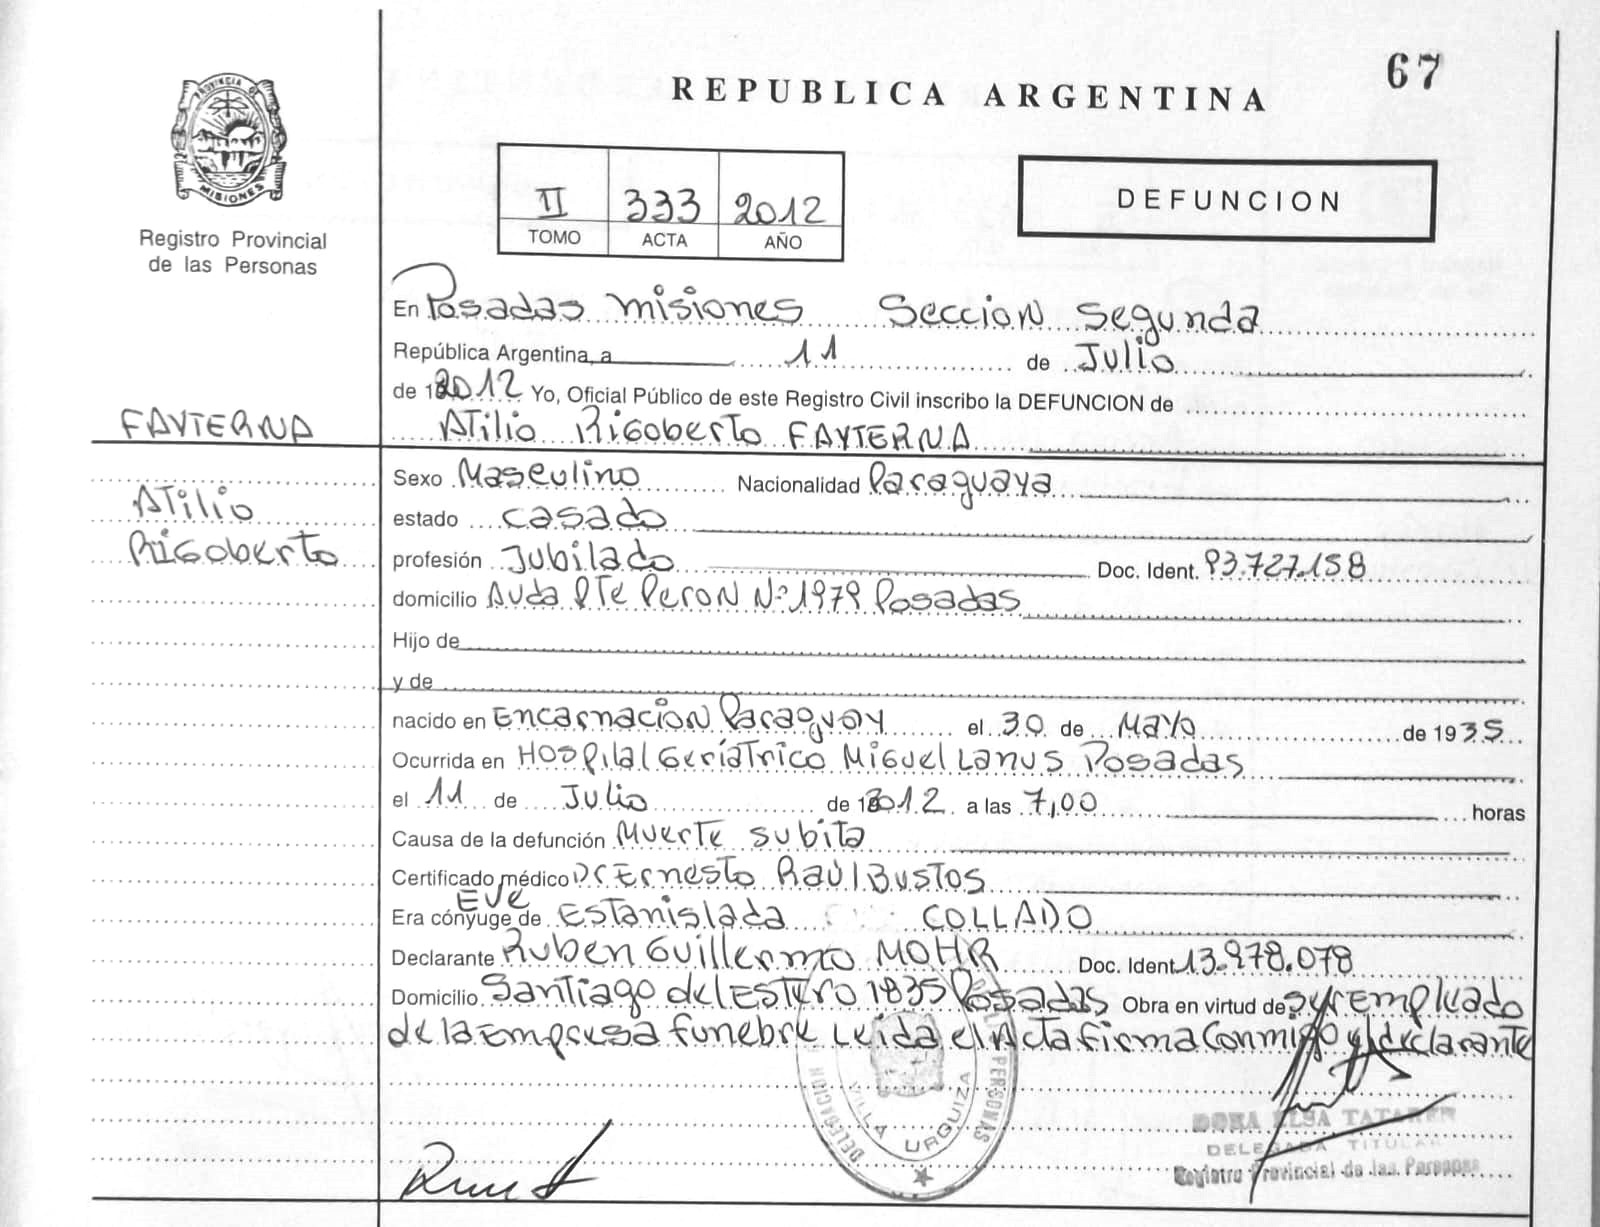 67
REPUBLICA ARGENTINA
PROVINCIA DE
MISIONES
Registro Provincial
de las Personas
II 333 2012
TOMO ACTA AÑO
DEFUNCION
En Posadas Misiones Seccion Segunda
República Argentina, a 11 de Julio
de 2012 Yo, Oficial Público de este Registro Civil inscribo la DEFUNCION de
FAYTERNA
Atilio Rigoberto FAYTERNA
Atilio
Rigoberto
Sexo Masculino Nacionalidad Paraguaya
estado casado
profesión Jubilado Doc. Ident. 93.727.158
domicilio Avda Pte Peron Nº 1979 Posadas
Hijo de
y de
nacido en Encarnacion Paraguay el 30 de Mayo de 1935
Ocurrida en Hospital Geriatrico Miguel Lanus Posadas
el 11 de Julio de 2012 a las 7,00 horas
Causa de la defunción Muerte subita
Certificado médico Dr Ernesto Raúl Bustos
Eve
Era cónyuge de Estanislada COLLADO
Declarante Ruben Guillermo MOHR Doc. Ident. 13.978.078
Domicilio Santiago del Estero 1835 Posadas Obra en virtud de ser empleado
de la Empresa funebre Leida el Acta firma Conmigo y declarante
DELEGACION PERSONAS
VILLA URQUIZA
DORA ELSA
DELEGADA TITULAR
Registro Provincial de las Personas